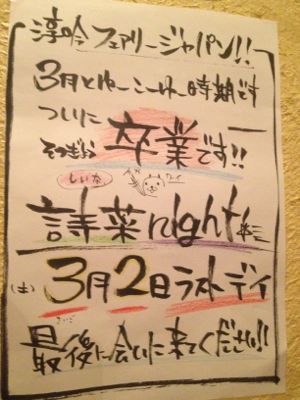 淳吟 フェアリージャパン!!
3月とゆーこーゆー時期です
ついに
そつぎょう
卒業です!!
しいな
詩菜night
(土) 3月2日ラストデイ
さいご
最後に会いに来てください!!